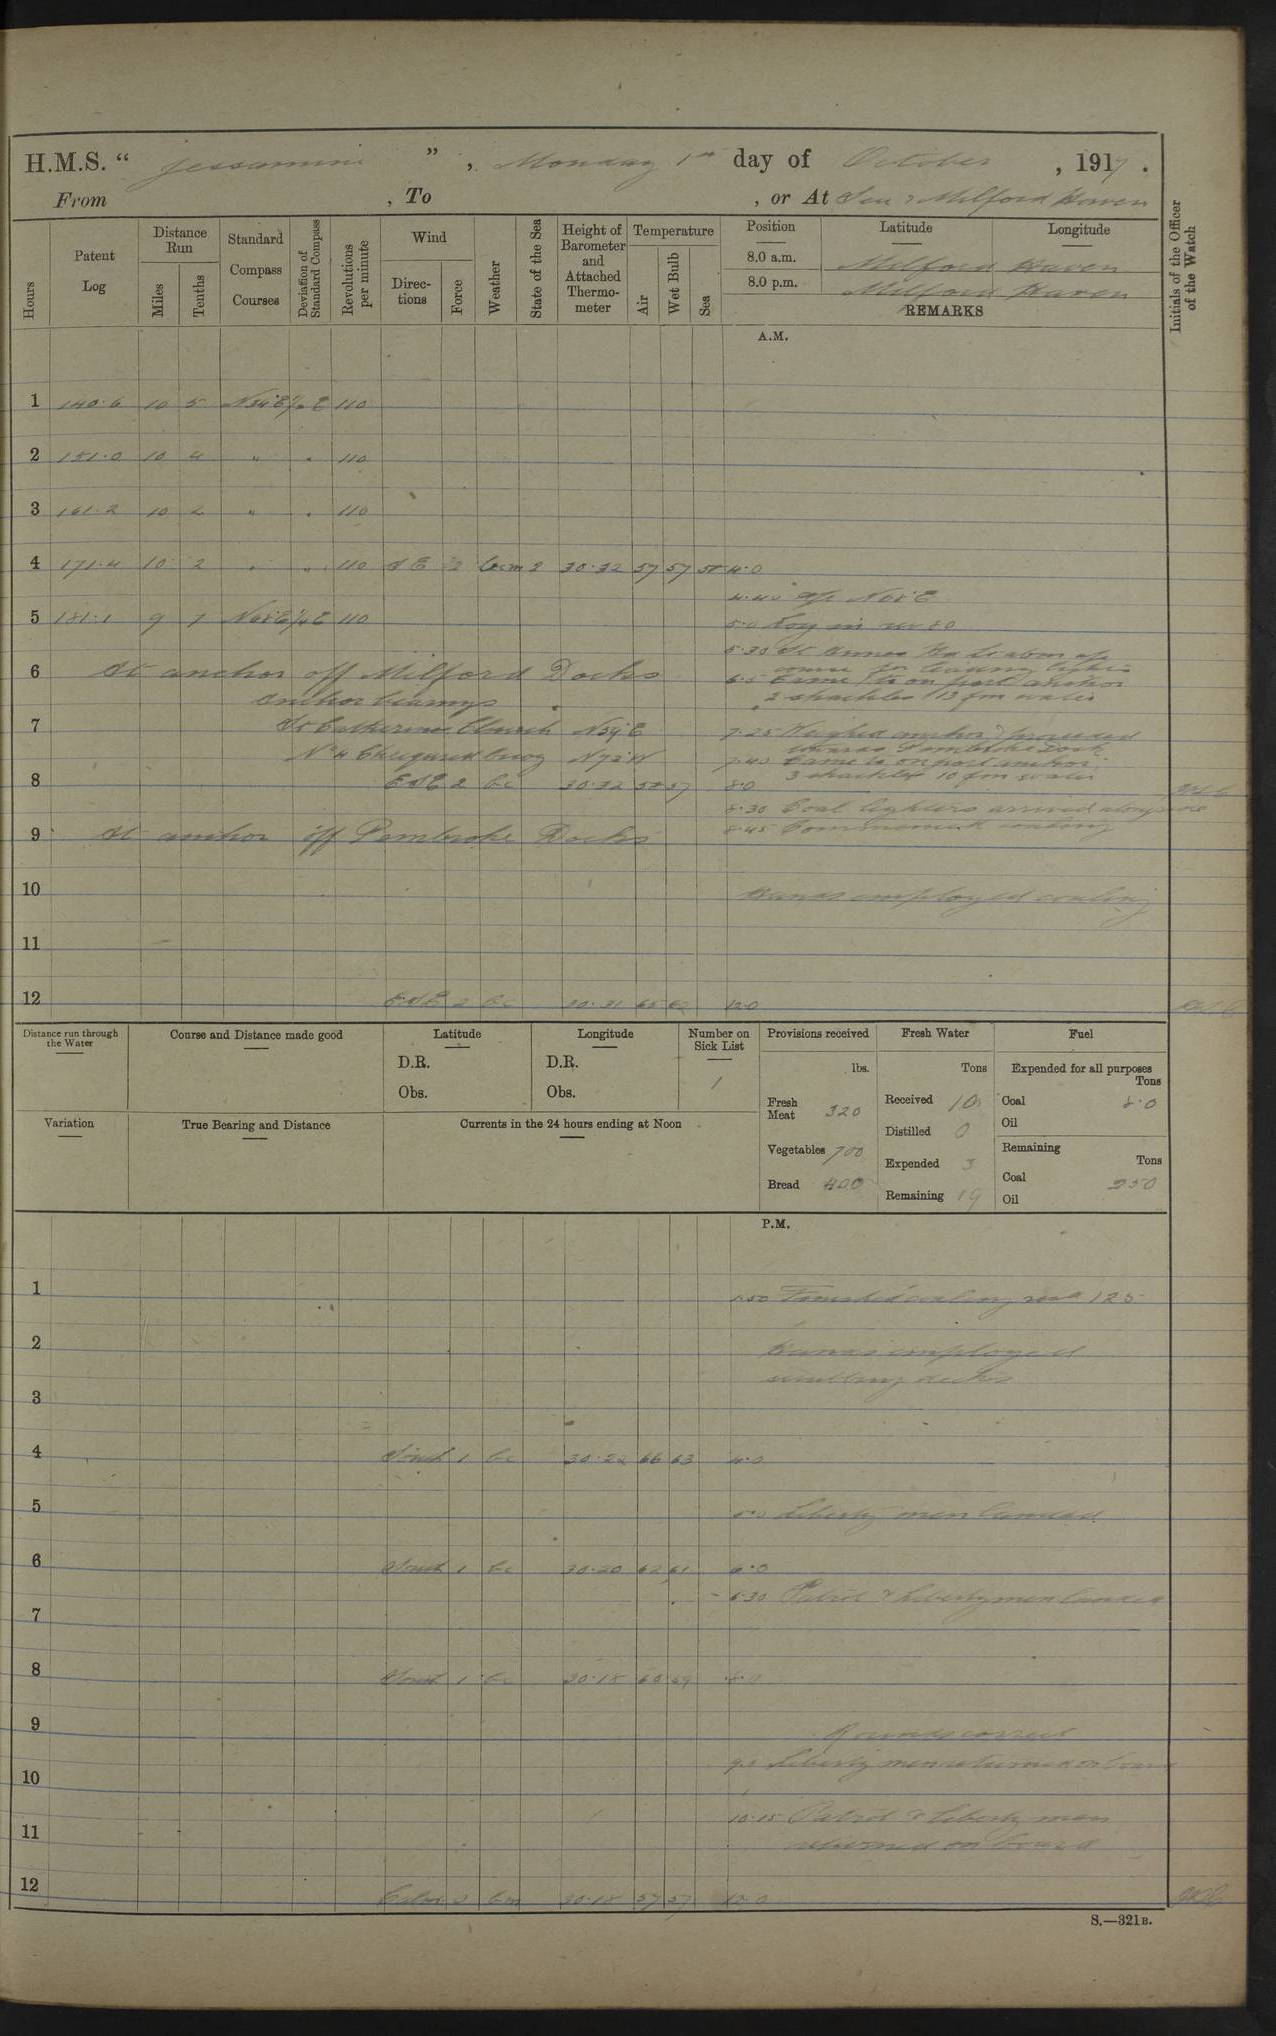 H.M.S. “ Jessamine ” , Monday 1st day of October , 1917 .
From , To , or At Sea & Milford Haven
Hours
Patent Log
Distance Run
Miles
Tenths
Standard Compass Courses
Deviation of Standard Compass
Revolutions per minute
Wind
Directions
Force
Weather
State of the Sea
Height of Barometer and Attached Thermometer
Temperature
Air
Wet Bulb
Sea
Position
Latitude
Longitude
8.0 a.m. Milford Haven
8.0 p.m. Milford Haven
REMARKS
Initials of the Officer of the Watch
A.M.
1 140.6 10 5 N34°E E 110
2 151.0 10 4 " " 110
3 161.2 10 2 " " 110
4 171.4 10 2 " " 110 SE 2 bcm 2 30.32 57 57 58 4.0
4.40 a/c N68°E
5 181.1 9 7 N68°E E 110
5.0 Log in
5.30 St Annes Hd abeam a/c
course for leading lights
6 At anchor off Milford Docks
6.5 Came to on port anchor
2 shackles 13 fm water
Anchor bearings
7 St Catherines Church N39°E
7.25 Weighed anchor & proceeded
towards Pembroke Dock
N72°W
7.40 Came to on port anchor
3 shackles 10 fm water
8 ESE 2 bc 30.32 58 57 8.0
8.30 Coal lighters arrived alongside
8.45 Commenced coaling
9 At anchor off Pembroke Docks
10 Hands employed coaling
11
12 ESE 2 bc 30.31 65 62 12.0
Distance run through the Water
Course and Distance made good
Latitude
D.R.
Obs.
Longitude
D.R.
Obs.
Number on Sick List
1
Provisions received
lbs.
Fresh Meat 320
Vegetables 700
Bread 400
Fresh Water
Tons
Received 10
Distilled 0
Expended 3
Remaining 19
Fuel
Expended for all purposes
Tons
Coal 8.0
Oil
Remaining
Tons
Coal 250
Oil
Variation
True Bearing and Distance
Currents in the 24 hours ending at Noon
P.M.
1 1.50 Finished coaling 125
2 Hands employed
scrubbing decks
3
4 South 1 bc 30.22 66 63 4.0
5 5.0 Liberty men landed
6 South 1 bc 30.20 62 61 6.0
6.30 Patrol & liberty men landed
7
8 South 1 bc 30.18 60 59 8.0
9 Rounds correct
9.0 Liberty men returned on board
10
10.15 Patrol & liberty men
11 returned on board
12 Calm 0 bm 30.18 57 57 12.0
S.—321B.